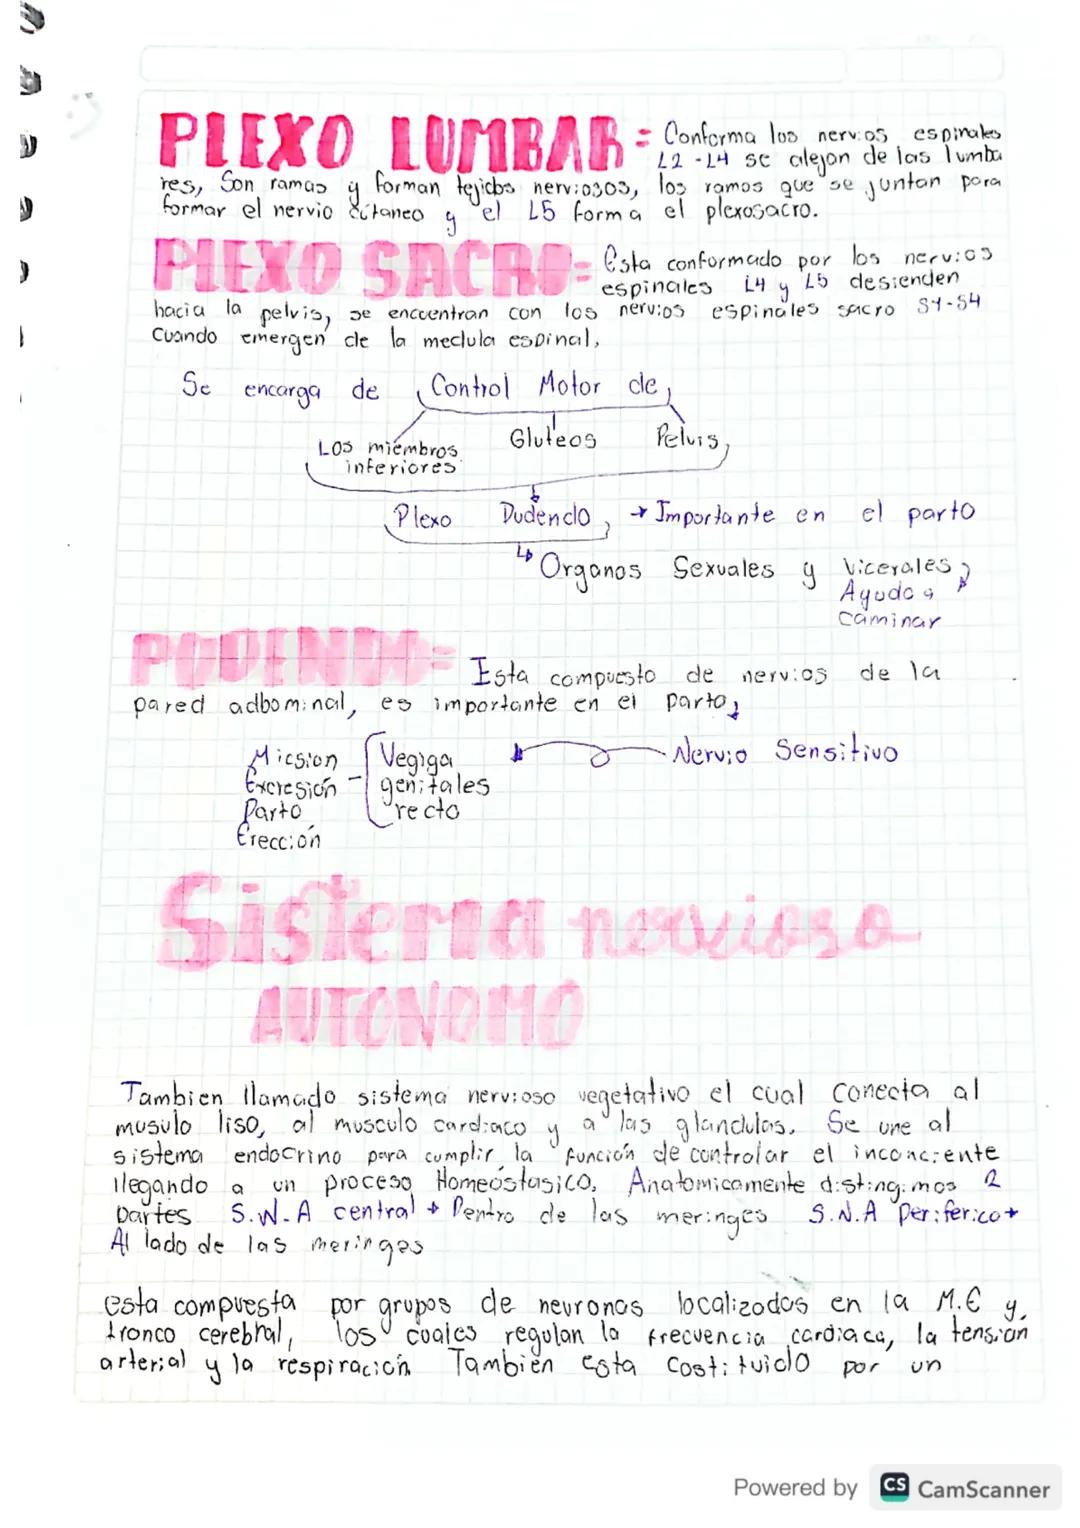 PLEXO LUMBAR = Conforma los nervios espinales
L2 - L4 se alejan de las lumba
res, Son ramas y forman tejidos nerviosos, los ramos que se juntan para
formar el nervio cútaneo y el L5 forma el plexosacro.
PLEXO SACRO = Esta conformado por los nervios
espinales L4 y L5 desienden
hacia la pelvis, se encuentran con los nervios espinales sacro S1-S4
Cuando emergen de la medula espinal,
Se encarga de Control Motor de,
Los miembros inferiores Gluteos Pelvis,
Plexo Pudendo, → Importante en el parto
↳ Organos Sexuales y Vicerales
Ayuda a
caminar
PUDENDO = Esta compuesto de nervios de la
pared adbominal, es importante en el parto,
Micsion Vegiga Nervio Sensitivo
Excresión - genitales
Parto recto
Erección
Sistema nervioso
AUTONOMO
Tambien llamado sistema nervioso vegetativo el cual conecta al
musulo liso, al musculo cardiaco y a las glandulas. Se une al
sistema endocrino para cumplir la función de controlar el inconciente
llegando a un proceso Homeostasico, Anatomicamente distingimos 2
partes S.N.A central → Dentro de las meringes S.N.A Periferico →
Al lado de las meringes
esta compuesta por grupos de neuronas localizadas en la M.E y,
tronco cerebral, los cuales regulan la frecuencia cardiaca, la tensión
arterial y la respiración También esta Costituido por un
Powered by CS CamScanner